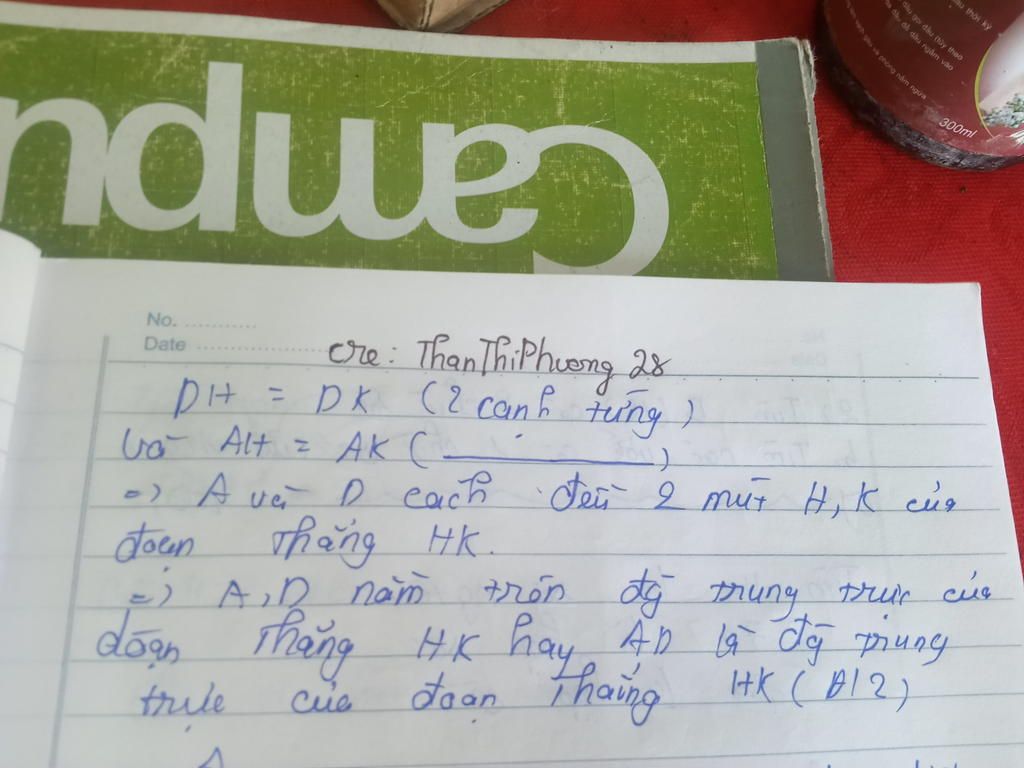 Campu
300ml
No. ............
Date ......................
cre: ThanThiPhuong 28
DH = DK (2 cạnh từng)
và AH = AK ( ____________ )
=> A và D cách đều 2 mút H, K của
đoạn thẳng HK.
=> A, D nằm trên đg trung trực của
đoạn thẳng HK hay AD là đg trung
trực của đoạn thẳng HK ( Đl 2)